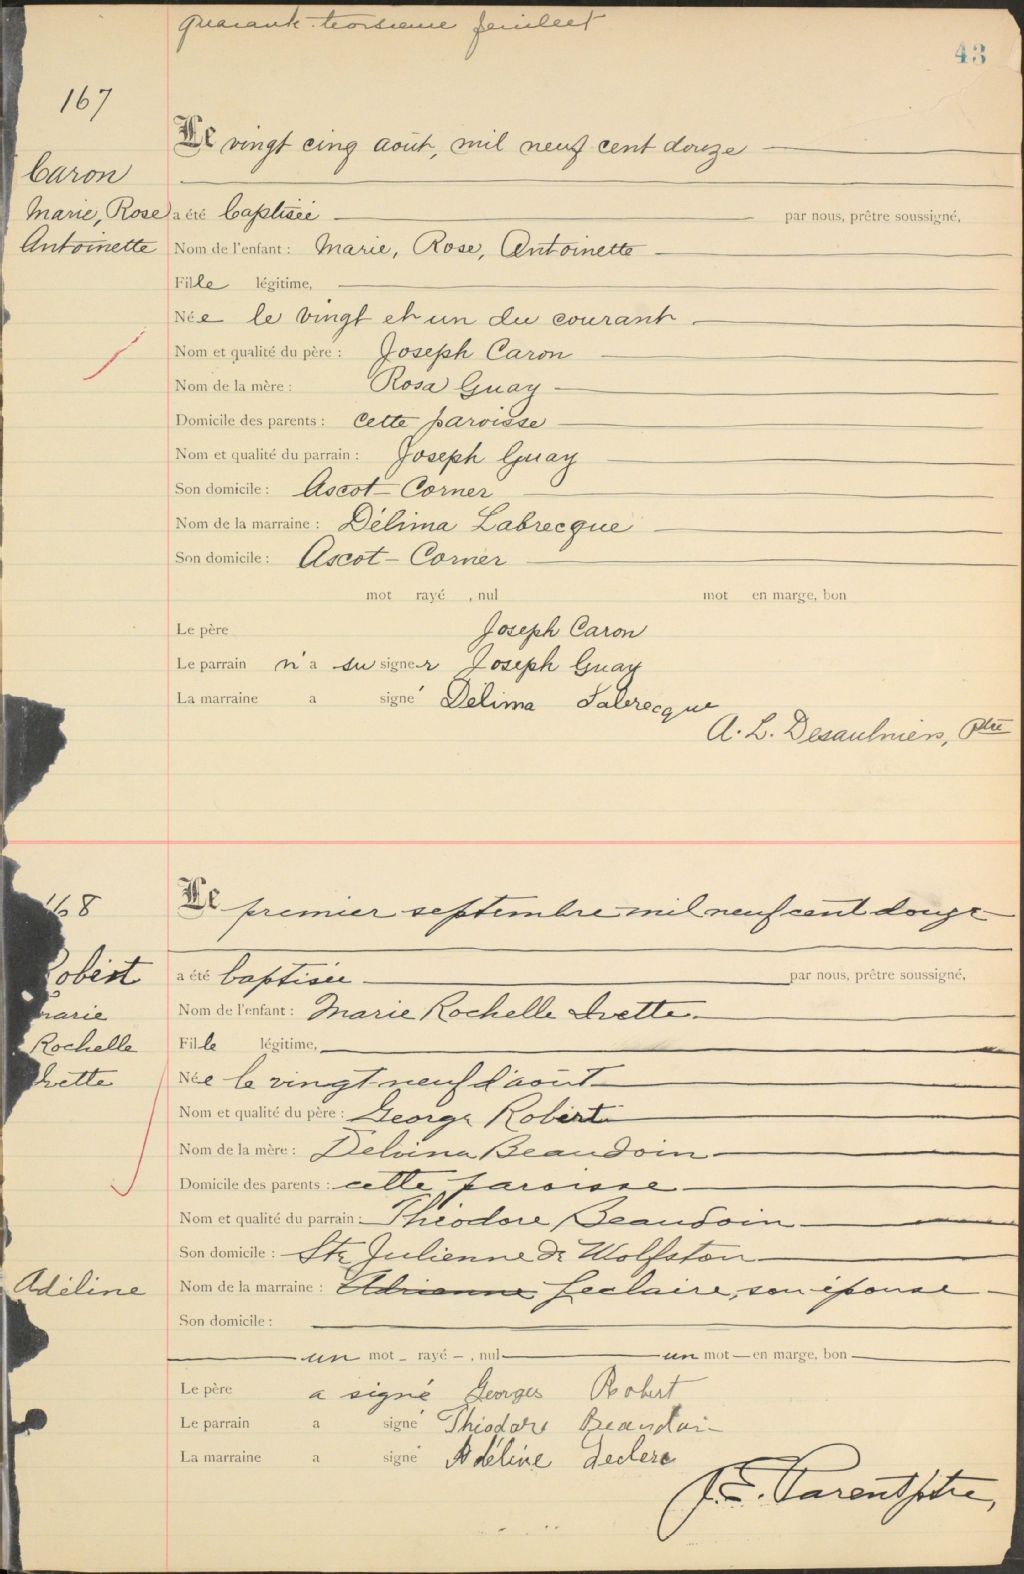 quarante-troisième feuillet
43
167
Le vingt cinq août, mil neuf cent douze
Caron
Marie, Rose
Antoinette
a été baptisée par nous, prêtre soussigné,
Nom de l'enfant : Marie, Rose, Antoinette
Fille légitime,
Née le vingt et un du courant
Nom et qualité du père : Joseph Caron
Nom de la mère : Rosa Guay
Domicile des parents : cette paroisse
Nom et qualité du parrain : Joseph Guay
Son domicile : Ascot-Corner
Nom de la marraine : Délima Labrecque
Son domicile : Ascot-Corner
mot rayé , nul mot en marge, bon
Le père Joseph Caron
Le parrain n'a su signer Joseph Guay
La marraine a signé Délima Labrecque
A. L. Desaulniers, Ptre
168
Le premier septembre mil neuf cent douze
Robert
Marie
Rochelle
Ivette
a été baptisée par nous, prêtre soussigné,
Nom de l'enfant : Marie Rochelle Ivette
Fille légitime,
Née le vingt-neuf d'août
Nom et qualité du père : George Robert
Nom de la mère : Delvina Beaudoin
Domicile des parents : cette paroisse
Nom et qualité du parrain : Théodore Beaudoin
Son domicile : Ste Julienne de Wolfston
Adéline
Nom de la marraine : Adrienne Leclaire, son épouse
Son domicile :
un mot rayé , nul un mot en marge, bon
Le père a signé Georges Robert
Le parrain a signé Théodore Beaudoin
La marraine a signé Adéline Leclerc
J. E. Parent ptre,